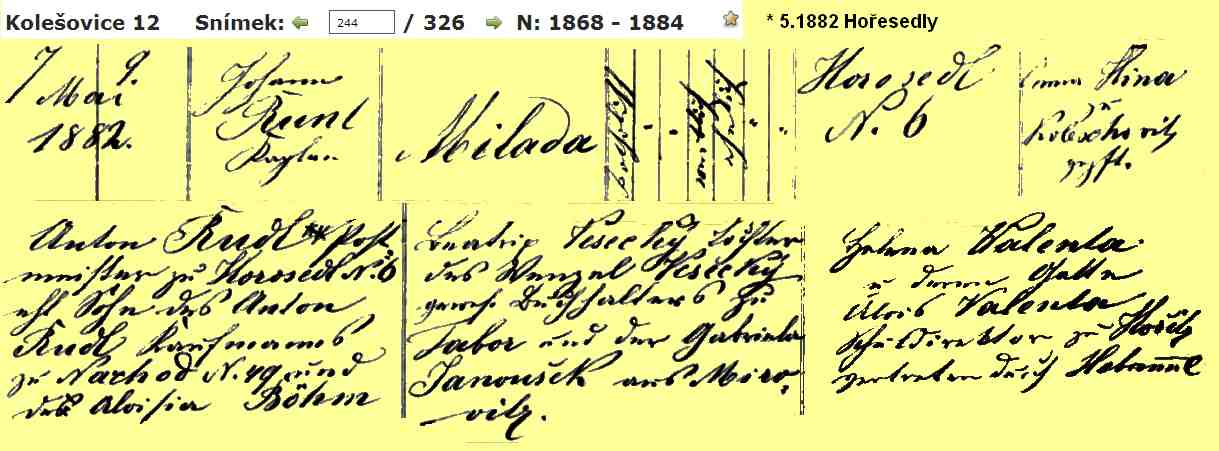 Kolešovice 12 Snímek: 244 / 326 N: 1868 - 1884
* 5.1882 Hořesedly
7 9.
Mai
1882.
Johann
Rudl
Kaplan
Milada
katholisch
Horosedl
N. 6
Anna Hina
zu
Koleschovitz
gepft.
Anton Rudl Post
meister zu Horosedl N. 6
ehl. Sohn des Anton
Rudl Kaufmanns
zu Nachod N. 49 und
der Aloisia Böhm
Beatrix Vesecký Tochter
des Wenzel Vesecký
Buchhalters zu
Tabor und der Gabriela
Janoušek aus Miro-
vitz.
Helena Valenta
u deren Gatte
Alois Valenta
Schuldirektor zu Hořitz
vertreten durch Hebamme